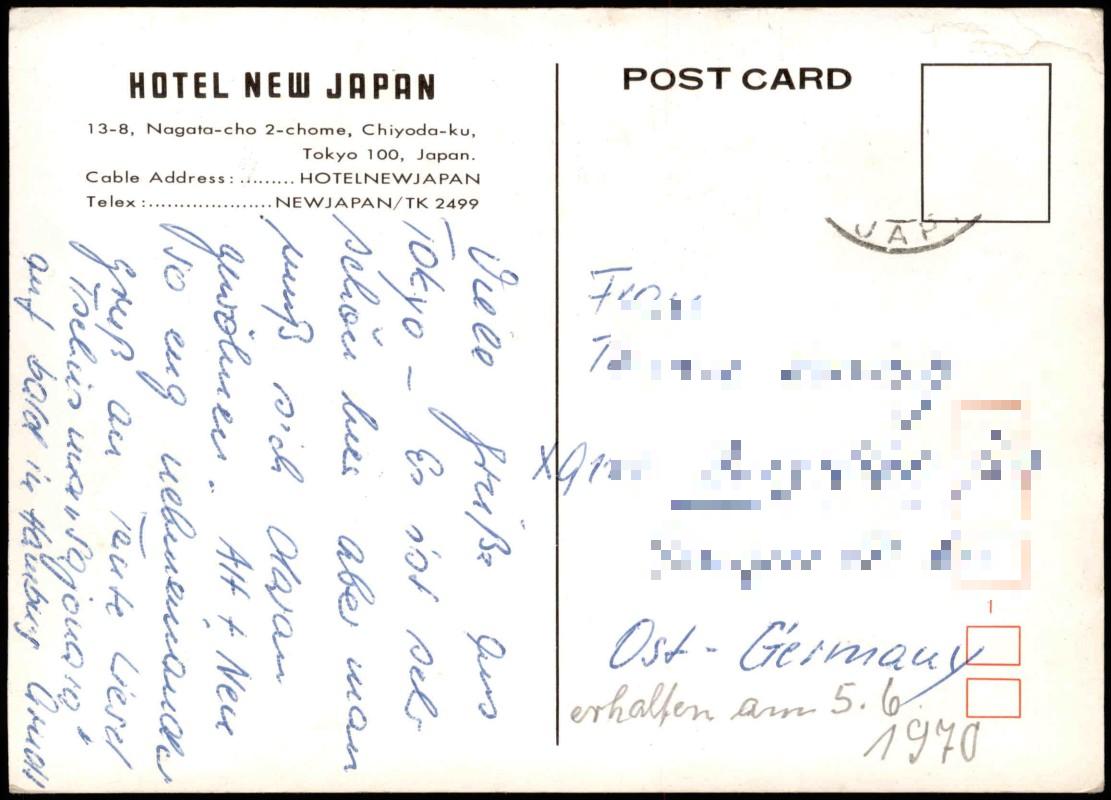 HOTEL NEW JAPAN
13-8, Nagata-cho 2-chome, Chiyoda-ku,
Tokyo 100, Japan.
Cable Address: ......... HOTELNEWJAPAN
Telex :.....................NEWJAPAN/TK 2499
Viele Grüße aus
Tokyo – Es ist sehr
schön hier aber man
muß sich daran
gewöhnen. Alt + Neu
so eng nebeneinander
Gruß an Tante Liesel
auf bald in Hamburg
POST CARD
JAP
Frau
Ost-Germany
erhalten am 5.6.
1970
1